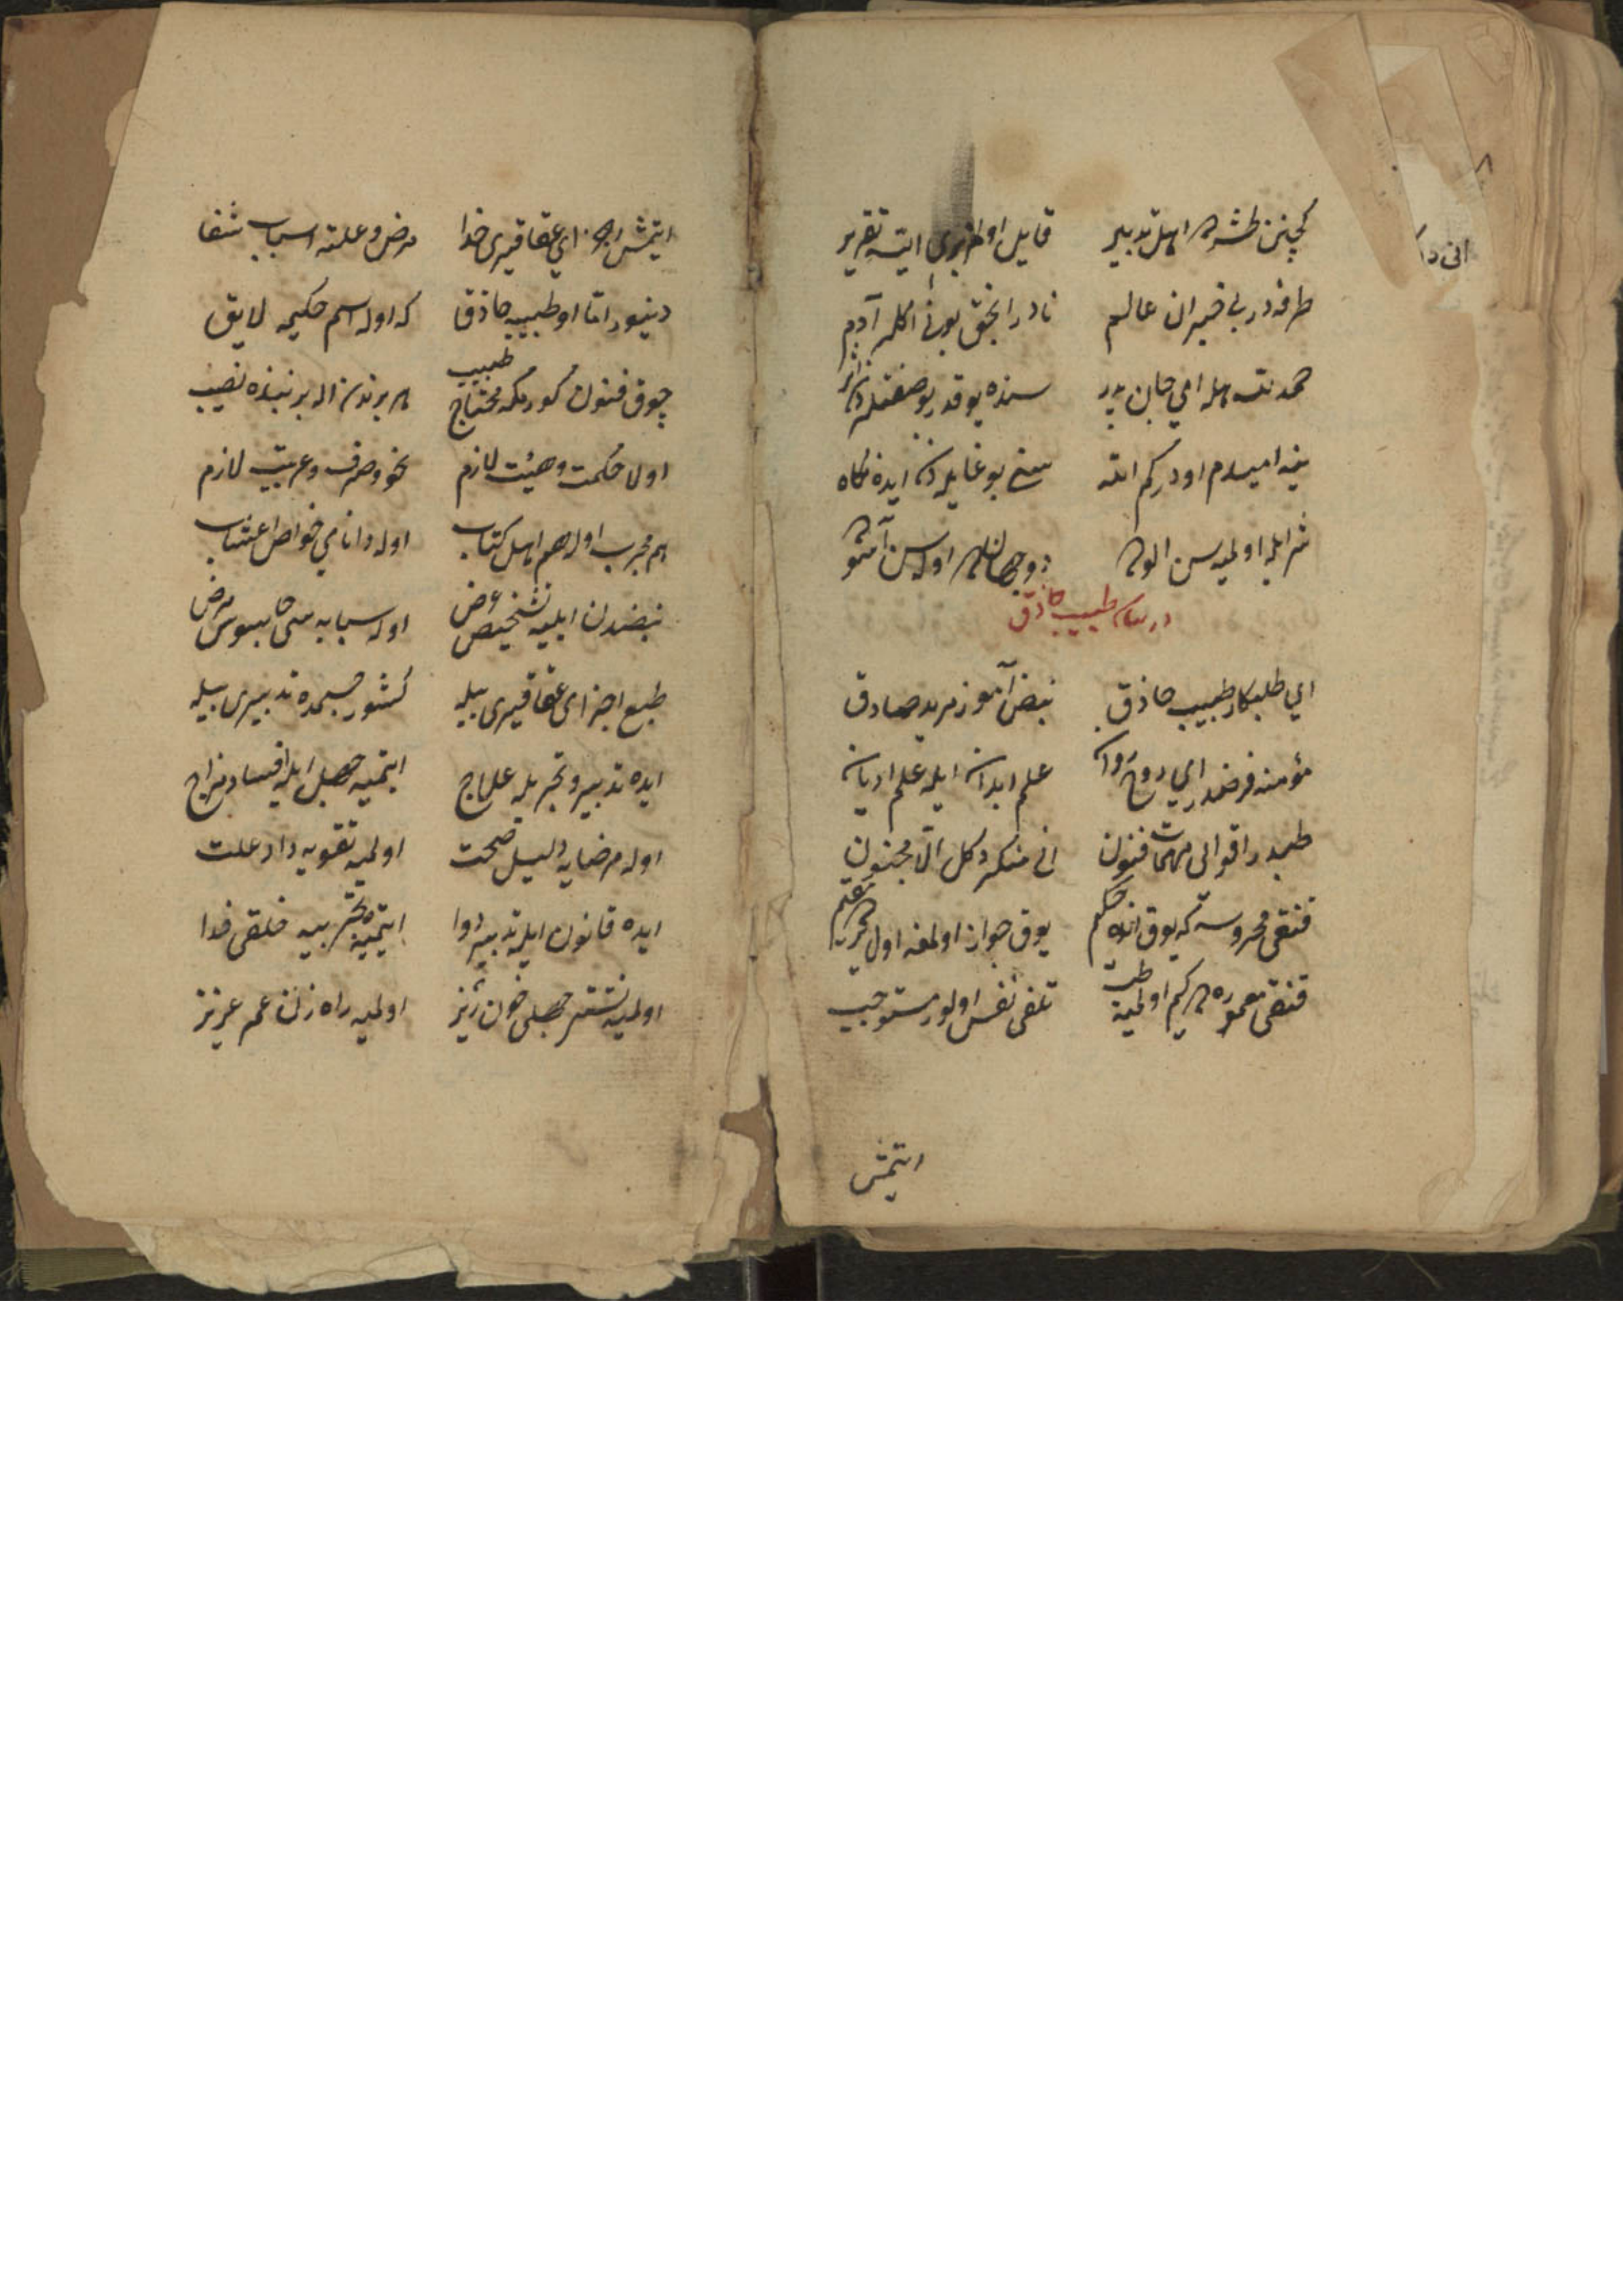 كچنن طشره اهل تدبير    قابل او اخترى ايتسه تقرير
طرفه در بى خبران عالم    نادر انجق بونى اكلر آدم
حمد لله هله اى جان پدر    سنده يوقدر بو صفتلردن اثر
ينه اميدم اودر كم الله    سنى بو غايله دن ايده نگاه
شر ايله اولميه سن الوده    دو جهانده اوله سن آسوده
در بيان طبيب حاذق
اى طلبكار طبيب حاذق    نبض آموز مريد صادق
مؤمنه فرضدر اى روح روان    علم ابدان ايله علم اديان
طبدر اقواى مهمات فنون    انى منكر دكل الا مجنون
قنقى محروسه كه يوق انده حكيم    يوق جواز اولمغه اول يرده مقيم
قنقى معموره ده كيم اولميه طب    تلفى نفس اولور مستوجب
ايتمش
ايتمش اجزاى عقاقيرى خدا    مرض و علته اسباب شفا
دينور اما او طبيبه حاذق    كه اوله اسم حكيمه لايق
چوق فنون كورمكه محتاج طبيب    هر برندن اله بر نبذه نصيب
اولا حكمت و هيئت لازم    نحو و صرف و عربيت لازم
هم مجرب اوله هم اهل كتاب    اوله داناى خواص اعشاب
نبضدن ايليه تشخيص عرض    اوله سبابه سى جاسوس مرض
طبع اجزاى عقاقيرى بيله    كشور جسمده تدبيرى بيله
ايده تدبير و تجربه ايله علاج    ايتميه جهل ايله افساد مزاج
اوله مرضايه دليل صحت    اولميه تقويه داد علت
ايده قانون ايله تدبير دوا    ايتميه تجربه خلقى خدا
اولميه نشتر جهلى خون ريز    اولميه راه زن عمر عزيز